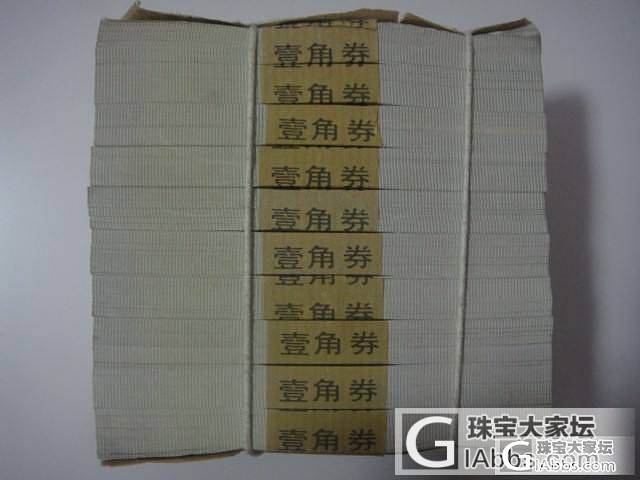 壹角券
壹角券
壹角券
壹角券
壹角券
壹角券
壹角券
壹角券
壹角券
壹角券
珠宝大家坛
GIAbbs.com
珠宝大家坛
GIABBS.com